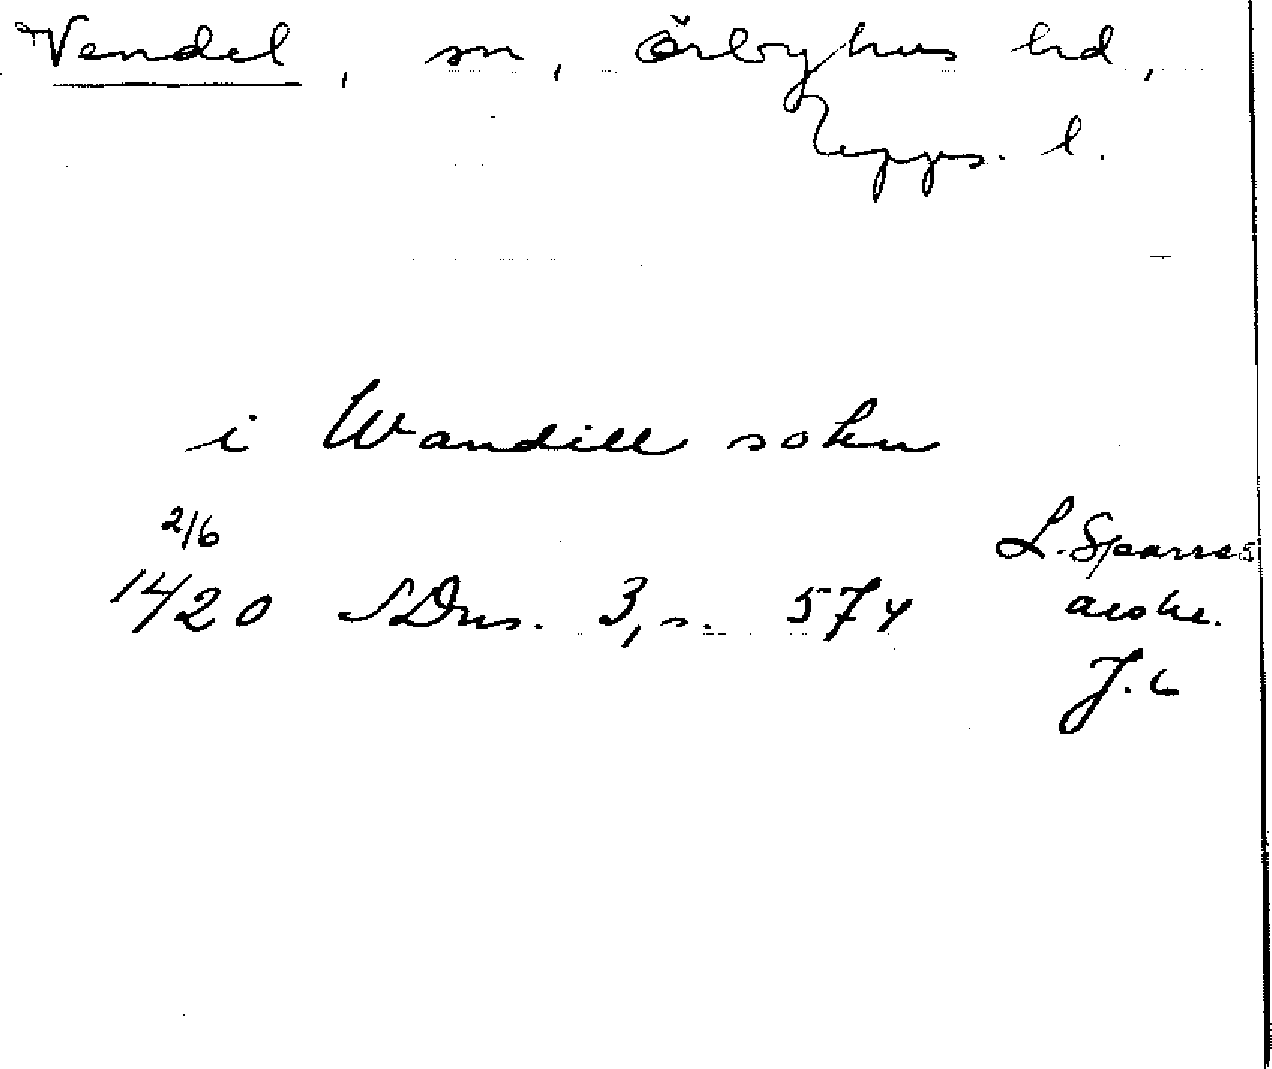 Vendel, sn, Örbyhus hd,
Upps. l.
i Wandill sokn
2/6
1420 SDns. 3, s. 574
L. Sparres
avskr.